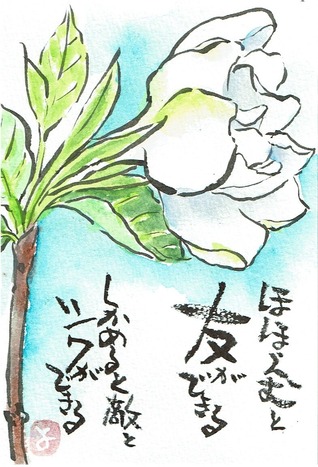 ほほえむと
友が
できる
しかめると敵と
シワが
できる